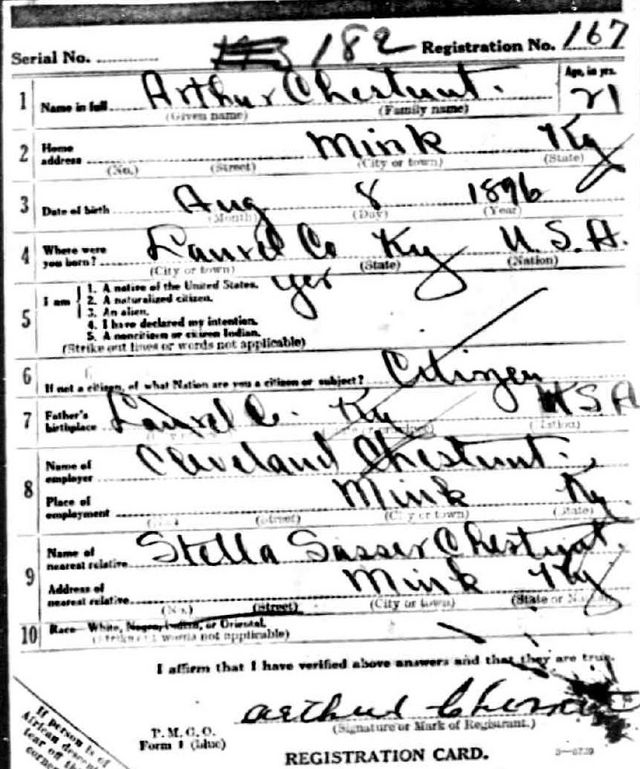 Serial No. 182 Registration No. 167
1 Name in full Arthur Chestnut. Age, in yrs. 21
(Given name) (Family name)
2 Home address Mink Ky
(No.) (Street) (City or town) (State)
3 Date of birth Aug 8 1896
(Month) (Day) (Year)
4 Where were you born? Laurel Co Ky U.S.A.
(City or town) (State) (Nation)
5 I am
1. A native of the United States. yes
2. A naturalized citizen.
3. An alien.
4. I have declared my intention.
5. A noncitizen or citizen Indian.
(Strike out lines or words not applicable)
6 If not a citizen, of what Nation are you a citizen or subject? Citizen
7 Father's birthplace Laurel Co. Ky USA
(Nation)
8 Name of employer Cleveland Chestnut.
Place of employment Mink Ky.
(No.) (Street) (City or town) (State)
9 Name of nearest relative Stella Sasser Chestnut.
Address of nearest relative Mink Ky
(No.) (Street) (City or town) (State or
10 Race—White, Negro, Indian, or Oriental.
(Strike out words not applicable)
I affirm that I have verified above answers and that they are true.
Arthur Chesnut
(Signature or Mark of Registrant.)
P. M. G. O.
Form 1 (blue)
REGISTRATION CARD.
If person is of
African descent
tear off the
corner